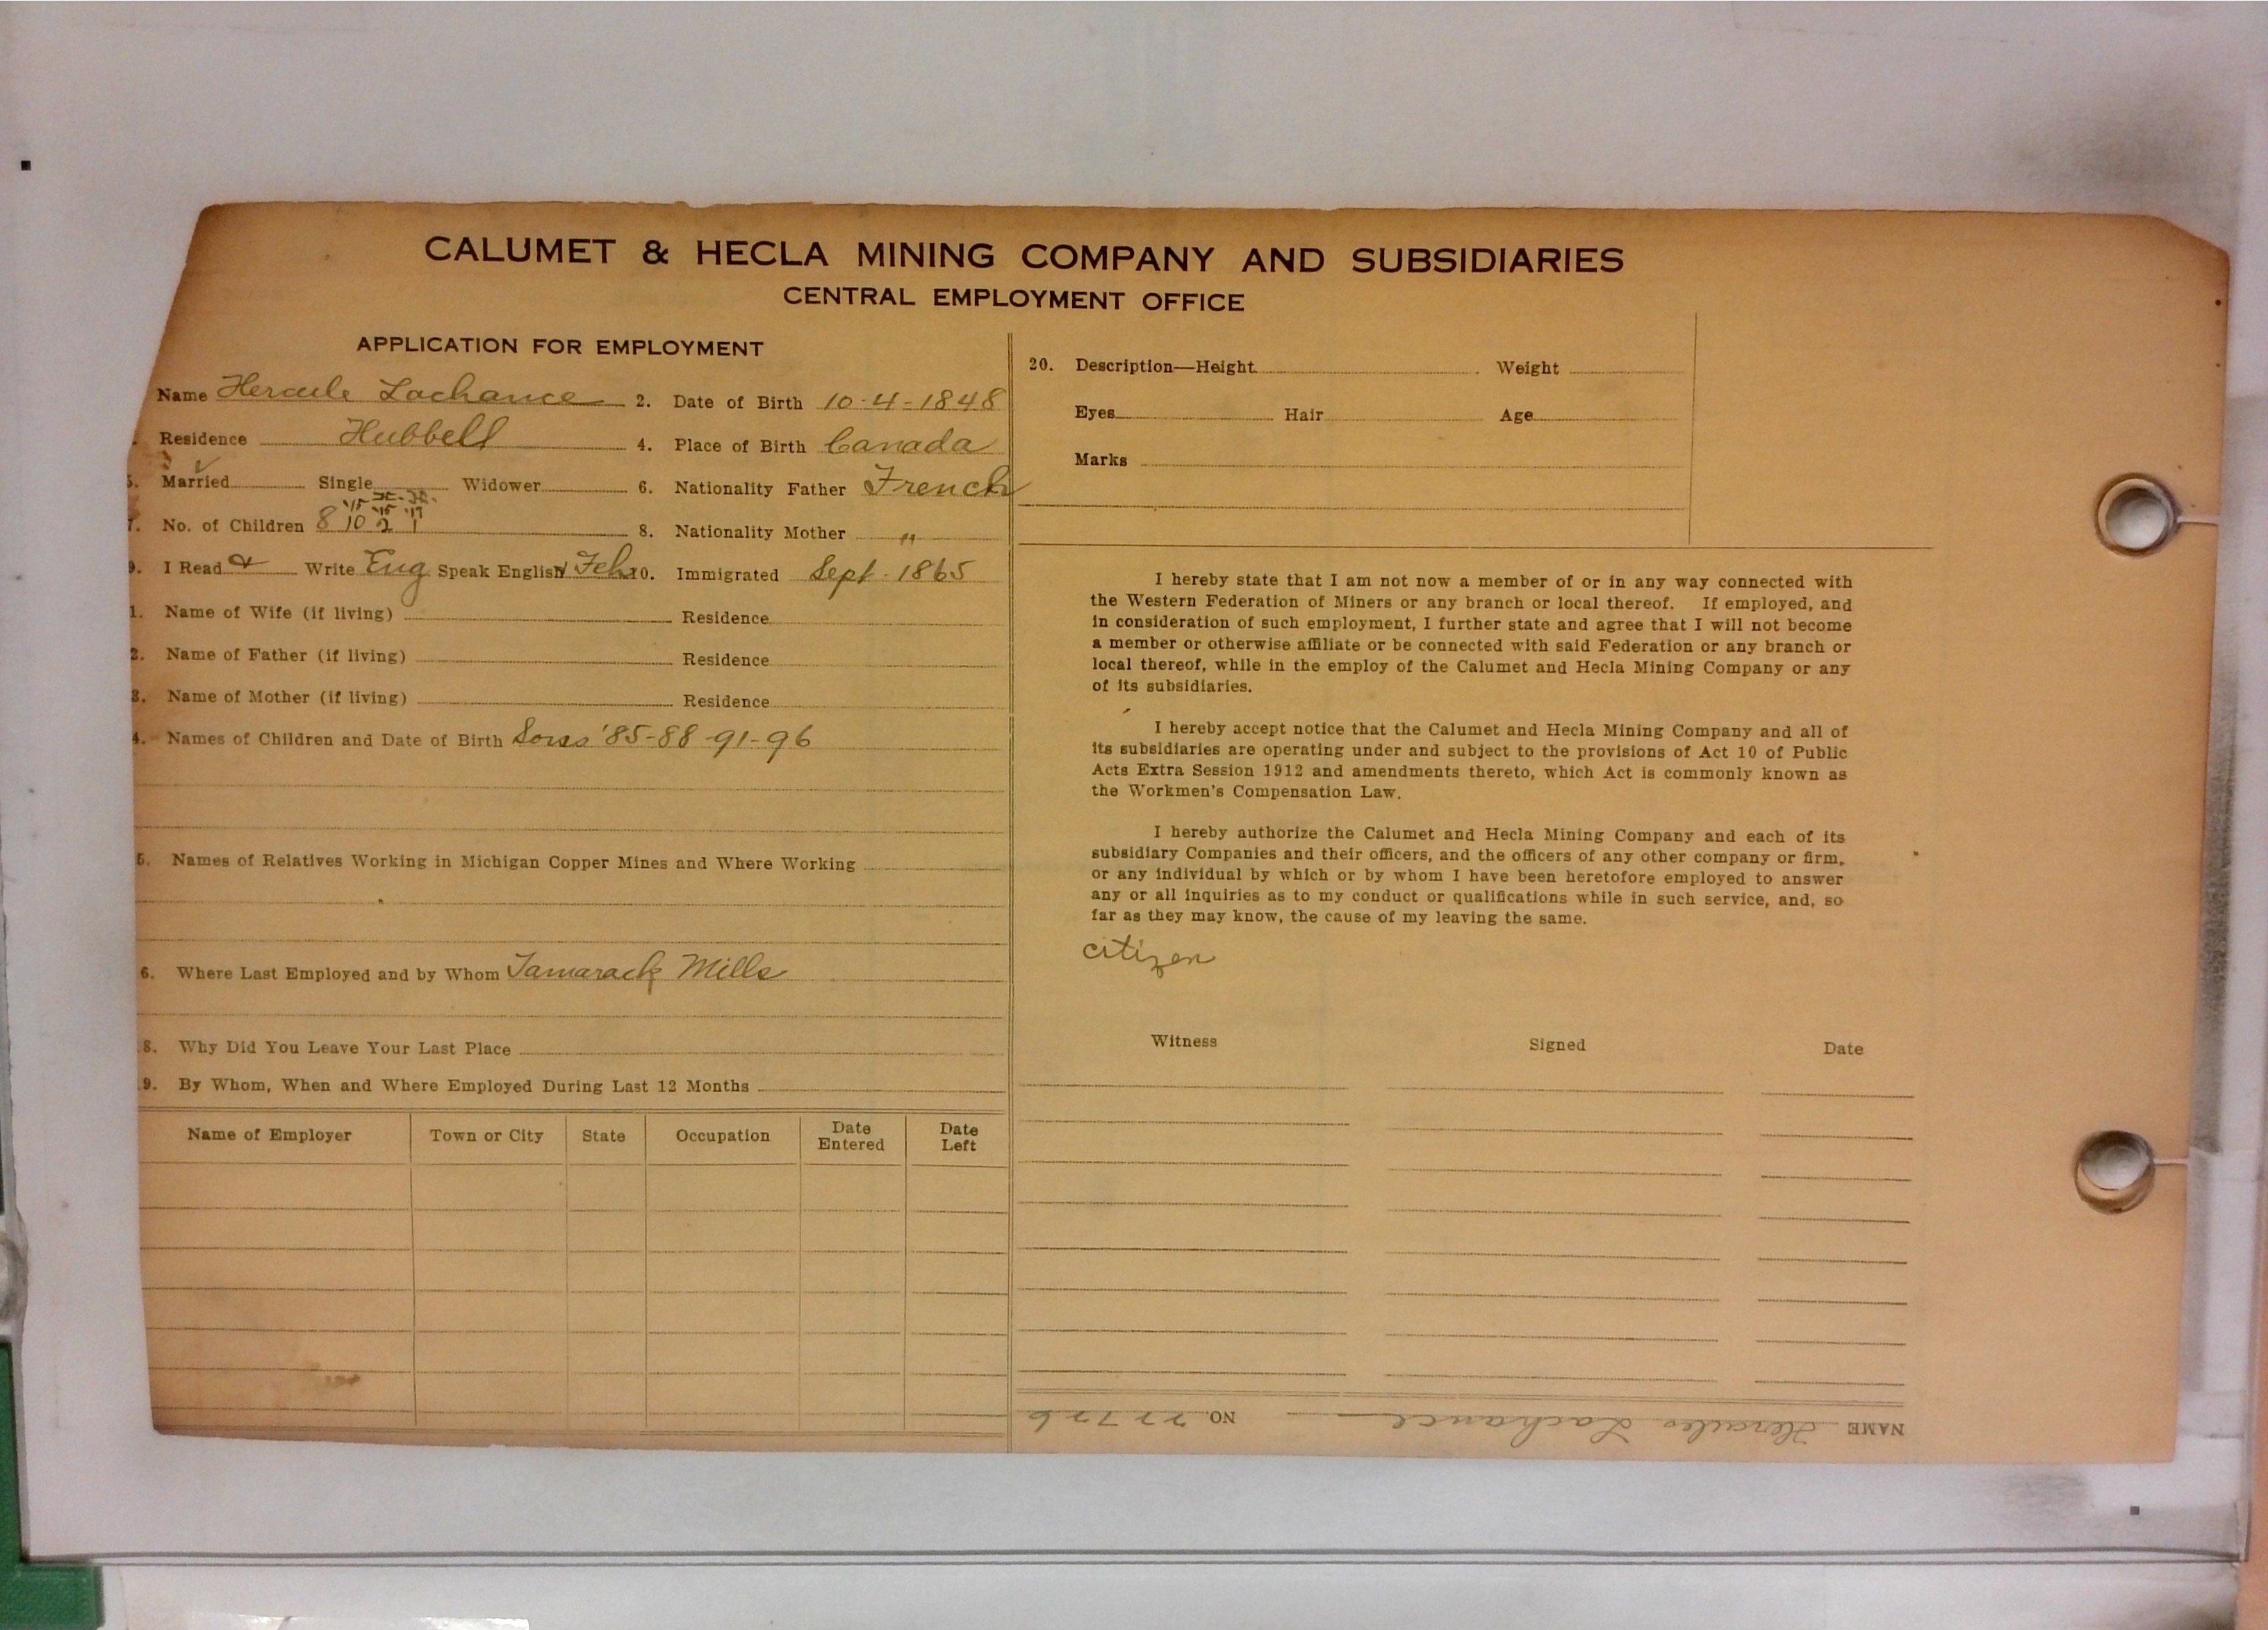 CALUMET & HECLA MINING COMPANY AND SUBSIDIARIES
CENTRAL EMPLOYMENT OFFICE
APPLICATION FOR EMPLOYMENT
Name Hercule Lachance 2. Date of Birth 10-4-1848
Residence Hubbell 4. Place of Birth Canada
5. Married Single Widower 6. Nationality Father French
'15 '15 '17
7. No. of Children 8 10 2 1 8. Nationality Mother "
9. I Read & Write Eng Speak English 10. Immigrated Sept. 1865
1. Name of Wife (if living) Residence
2. Name of Father (if living) Residence
3. Name of Mother (if living) Residence
4. Names of Children and Date of Birth Sons '85-88-91-96
5. Names of Relatives Working in Michigan Copper Mines and Where Working
6. Where Last Employed and by Whom Tamarack Mills
8. Why Did You Leave Your Last Place
9. By Whom, When and Where Employed During Last 12 Months
Name of Employer Town or City State Occupation Date Entered Date Left
20. Description—Height Weight
Eyes Hair Age
Marks
I hereby state that I am not now a member of or in any way connected with
the Western Federation of Miners or any branch or local thereof. If employed, and
in consideration of such employment, I further state and agree that I will not become
a member or otherwise affiliate or be connected with said Federation or any branch or
local thereof, while in the employ of the Calumet and Hecla Mining Company or any
of its subsidiaries.
I hereby accept notice that the Calumet and Hecla Mining Company and all of
its subsidiaries are operating under and subject to the provisions of Act 10 of Public
Acts Extra Session 1912 and amendments thereto, which Act is commonly known as
the Workmen's Compensation Law.
I hereby authorize the Calumet and Hecla Mining Company and each of its
subsidiary Companies and their officers, and the officers of any other company or firm,
or any individual by which or by whom I have been heretofore employed to answer
any or all inquiries as to my conduct or qualifications while in such service, and, so
far as they may know, the cause of my leaving the same.
citizen
Witness Signed Date
NAME Hercules Lachance NO. 22726